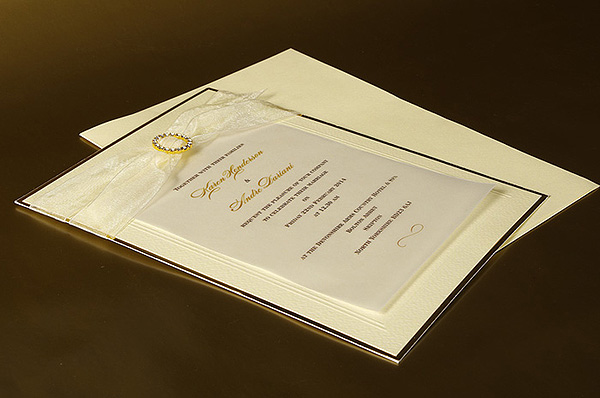 Together with their families
Karen Henderson
&
Andre Dariani
request the pleasure of your company
to celebrate their marriage
Friday 22nd February 2014
at 12.30 am
at the Devonshire Arms Country Hotel & Spa
Bolton Abbey
Skipton
North Yorkshire BD23 6AJ